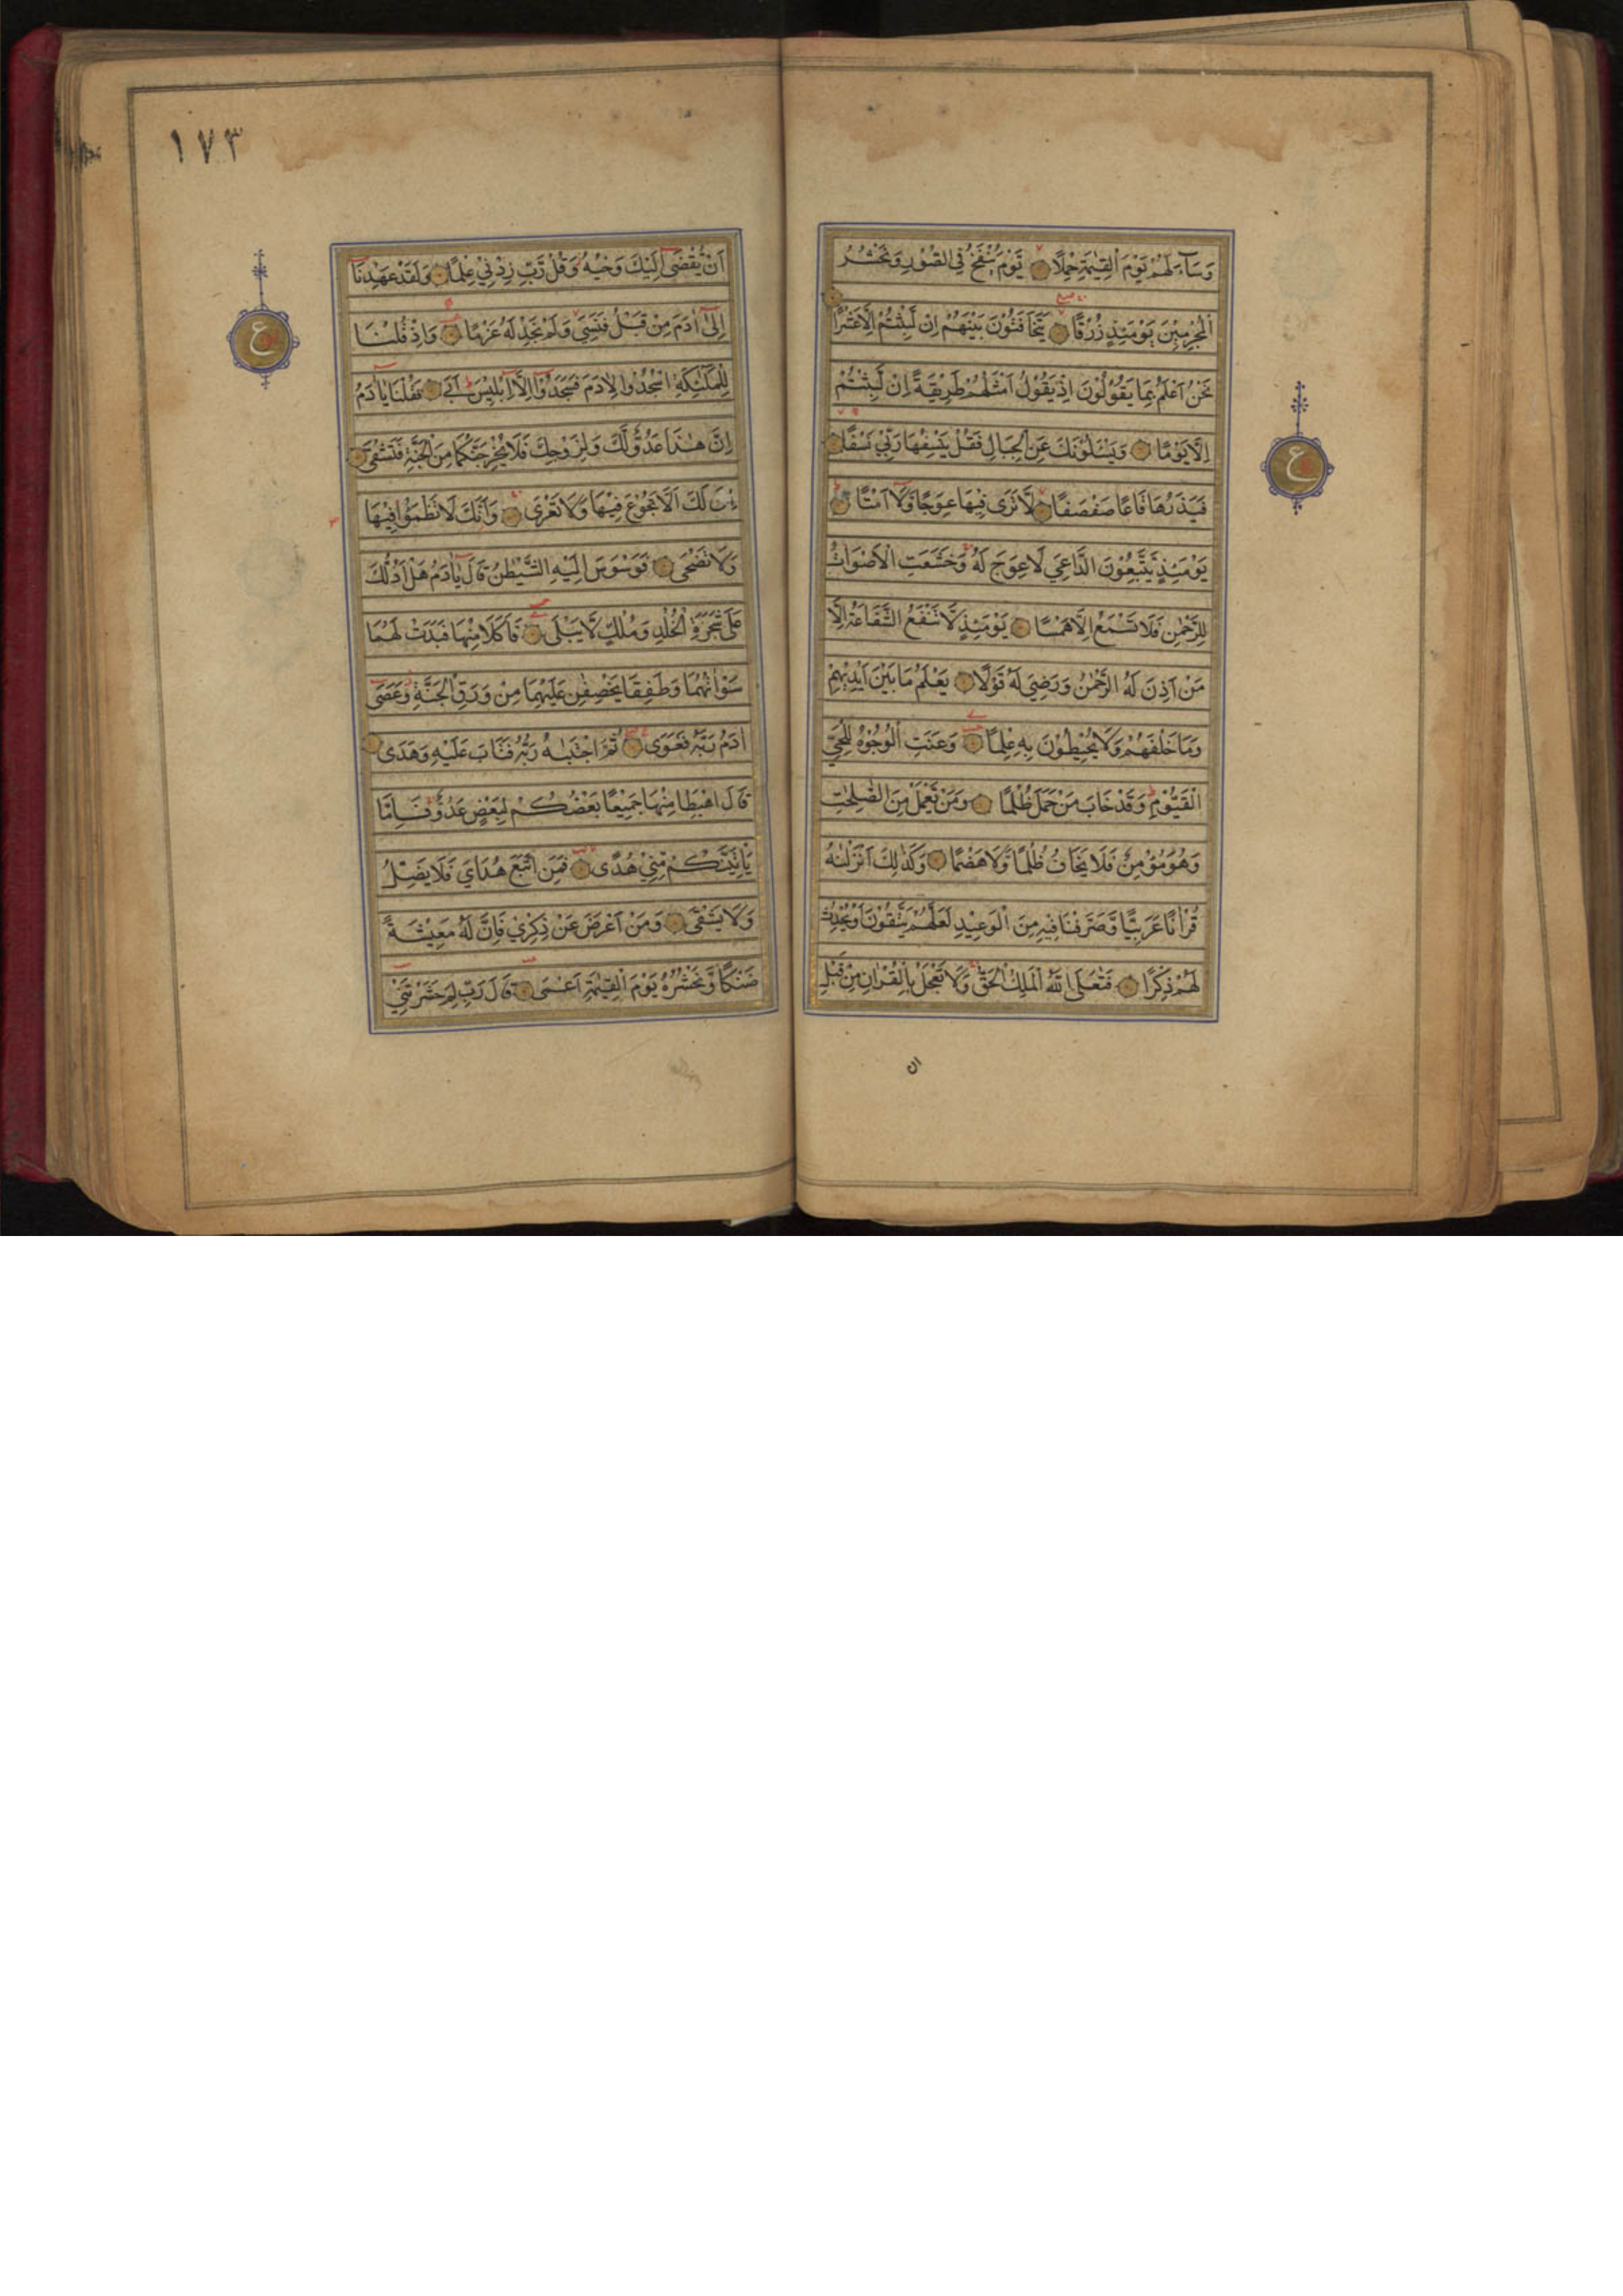 وَسَآءَ لَهُمْ يَوْمَ الْقِيٰمَةِ حِمْلًا يَوْمَ يُنْفَخُ فِي الصُّوْرِ وَنَحْشُرُ
الْمُجْرِمِيْنَ يَوْمَئِذٍ زُرْقًا يَتَخَافَتُوْنَ بَيْنَهُمْ اِنْ لَبِثْتُمْ اِلَّا عَشْرًا
نَحْنُ اَعْلَمُ بِمَا يَقُوْلُوْنَ اِذْ يَقُوْلُ اَمْثَلُهُمْ طَرِيْقَةً اِنْ لَبِثْتُمْ
اِلَّا يَوْمًا وَيَسْئَلُوْنَكَ عَنِ الْجِبَالِ فَقُلْ يَنْسِفُهَا رَبِّي نَسْفًا
فَيَذَرُهَا قَاعًا صَفْصَفًا لَّا تَرٰى فِيْهَا عِوَجًا وَّلَا اَمْتًا
يَوْمَئِذٍ يَتَّبِعُوْنَ الدَّاعِيَ لَا عِوَجَ لَهُ وَخَشَعَتِ الْاَصْوَاتُ
لِلرَّحْمٰنِ فَلَا تَسْمَعُ اِلَّا هَمْسًا يَوْمَئِذٍ لَّا تَنْفَعُ الشَّفَاعَةُ اِلَّا
مَنْ اَذِنَ لَهُ الرَّحْمٰنُ وَرَضِيَ لَهُ قَوْلًا يَعْلَمُ مَا بَيْنَ اَيْدِيْهِمْ
وَمَا خَلْفَهُمْ وَلَا يُحِيْطُوْنَ بِهِ عِلْمًا وَعَنَتِ الْوُجُوْهُ لِلْحَيِّ
الْقَيُّوْمِ وَقَدْ خَابَ مَنْ حَمَلَ ظُلْمًا وَمَنْ يَّعْمَلْ مِنَ الصّٰلِحٰتِ
وَهُوَ مُؤْمِنٌ فَلَا يَخَافُ ظُلْمًا وَّلَا هَضْمًا وَكَذٰلِكَ اَنْزَلْنٰهُ
قُرْاٰنًا عَرَبِيًّا وَّصَرَّفْنَا فِيْهِ مِنَ الْوَعِيْدِ لَعَلَّهُمْ يَتَّقُوْنَ اَوْ يُحْدِثُ
لَهُمْ ذِكْرًا فَتَعٰلَى اللّٰهُ الْمَلِكُ الْحَقُّ وَلَا تَعْجَلْ بِالْقُرْاٰنِ مِنْ قَبْلِ
ان
ع
١٧٣
اَنْ يُّقْضٰى اِلَيْكَ وَحْيُهُ وَقُلْ رَّبِّ زِدْنِي عِلْمًا وَلَقَدْ عَهِدْنَا
اِلٰى اٰدَمَ مِنْ قَبْلُ فَنَسِيَ وَلَمْ نَجِدْ لَهُ عَزْمًا وَاِذْ قُلْنَا
لِلْمَلٰئِكَةِ اسْجُدُوا لِاٰدَمَ فَسَجَدُوْا اِلَّا اِبْلِيْسَ اَبٰى فَقُلْنَا يَا اٰدَمُ
اِنَّ هٰذَا عَدُوٌّ لَّكَ وَلِزَوْجِكَ فَلَا يُخْرِجَنَّكُمَا مِنَ الْجَنَّةِ فَتَشْقٰى
اِنَّ لَكَ اَلَّا تَجُوْعَ فِيْهَا وَلَا تَعْرٰى وَاَنَّكَ لَا تَظْمَؤُا فِيْهَا
وَلَا تَضْحٰى فَوَسْوَسَ اِلَيْهِ الشَّيْطٰنُ قَالَ يٰاٰدَمُ هَلْ اَدُلُّكَ
عَلٰى شَجَرَةِ الْخُلْدِ وَمُلْكٍ لَّا يَبْلٰى فَاَكَلَا مِنْهَا فَبَدَتْ لَهُمَا
سَوْاٰتُهُمَا وَطَفِقَا يَخْصِفٰنِ عَلَيْهِمَا مِنْ وَرَقِ الْجَنَّةِ وَعَصٰى
اٰدَمُ رَبَّهُ فَغَوٰى ثُمَّ اجْتَبٰىهُ رَبُّهُ فَتَابَ عَلَيْهِ وَهَدٰى
قَالَ اهْبِطَا مِنْهَا جَمِيْعًا بَعْضُكُمْ لِبَعْضٍ عَدُوٌّ فَاِمَّا
يَاْتِيَنَّكُمْ مِّنِّيْ هُدًى فَمَنِ اتَّبَعَ هُدَايَ فَلَا يَضِلُّ
وَلَا يَشْقٰى وَمَنْ اَعْرَضَ عَنْ ذِكْرِيْ فَاِنَّ لَهُ مَعِيْشَةً
ضَنْكًا وَّنَحْشُرُهُ يَوْمَ الْقِيٰمَةِ اَعْمٰى قَالَ رَبِّ لِمَ حَشَرْتَنِيْ
ع